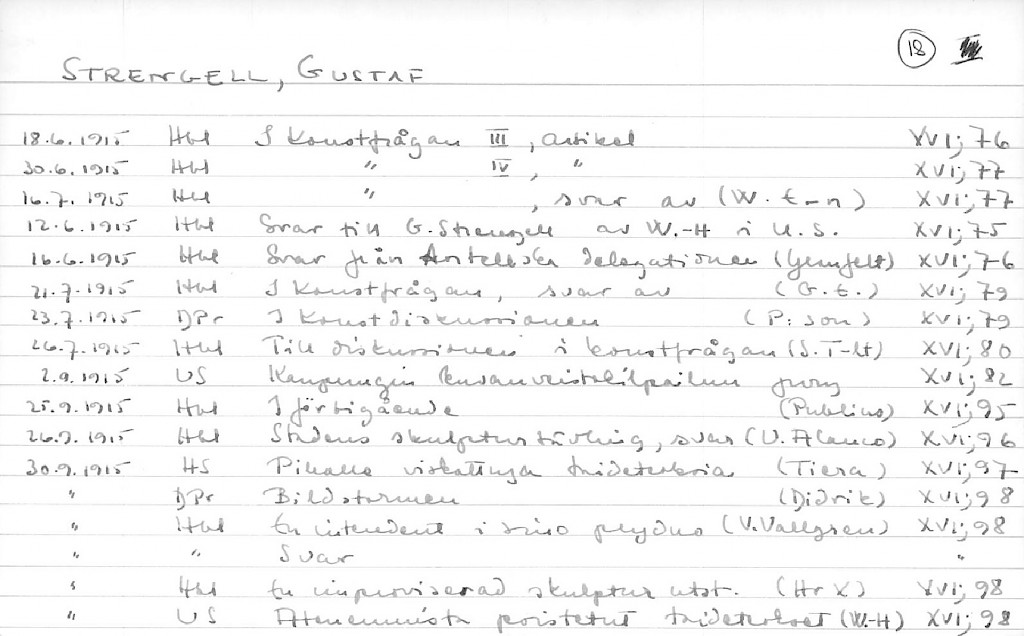 18
STRENGELL, GUSTAF
18.6.1915 Hbl I Konstfrågan III, artikel XVI; 76
30.6.1915 Hbl " IV, " XVI; 77
16.7.1915 Hbl " , svar av (W. t-n) XVI; 77
12.6.1915 Hbl Svar till G. Strengell av W.-H i U.S. XVI; 75
16.6.1915 Hbl Svar från Antellska delegationen (Jernfelt) XVI; 76
21.7.1915 Hbl I Konstfrågan, svar av (G.t.) XVI; 79
23.7.1915 DPr I Konstdiskussionen (P:son) XVI; 79
26.7.1915 Hbl Till diskussionen i konstfrågan (S.T-lt) XVI; 80
2.9.1915 US Kaupungin kuvanveistokilpailun jury XVI; 82
25.9.1915 Hbl I förbigående (Publius) XVI; 95
26.9.1915 Hbl Stadens skulpturtävling, svar (V. Alanco) XVI; 96
30.9.1915 HS Pikalle viskattuja taideteoksia (Tiera) XVI; 97
" DPr Bildstormen (Didrik) XVI; 98
" Hbl En intendent i sino prydno (V. Vallgren) XVI; 98
" " Svar "
" Hbl En improviserad skulptur utst. (Hr X) XVI; 98
" US Ateneumista poistetut taideteokset (W.-H) XVI; 98